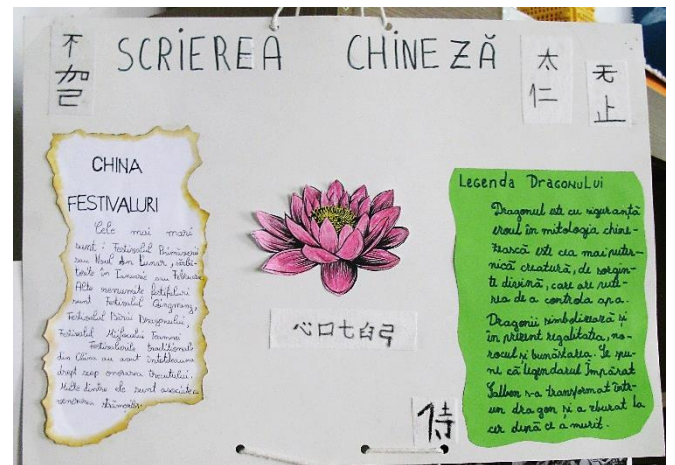 SCRIEREA CHINEZĂ
不
加
己
太
仁
无
止
CHINA
FESTIVALURI
Cele mai mari
sunt: Festivalul Primăverii
sau Noul An Lunar, sărbă-
torite în Ianuarie sau Februarie
Alte renumite festivaluri
sunt Festivalul Qingming,
Festivalul Bărcii Dragonului,
Festivalul Mijlocului Toamnei
Festivalurile tradițional
din China au avut întotdeauna
drept scop onorarea trecutului.
Multe dintre ele sunt asociate
venerarea strămoșilor
心口七白弓
侍
Legenda Dragonului
Dragonul este cu siguranță
eroul în mitologia chine-
zească este cea mai puter-
nică creatură, de sorgin-
te divină, care are pute-
rea de a controla apa.
Dragonii simbolizează și
în prezent regalitatea, no-
rocul și bunăstarea. Se spu-
ne că legendarul Împărat
Galben s-a transformat într-
un dragon și a zburat la
cer după ce a murit.